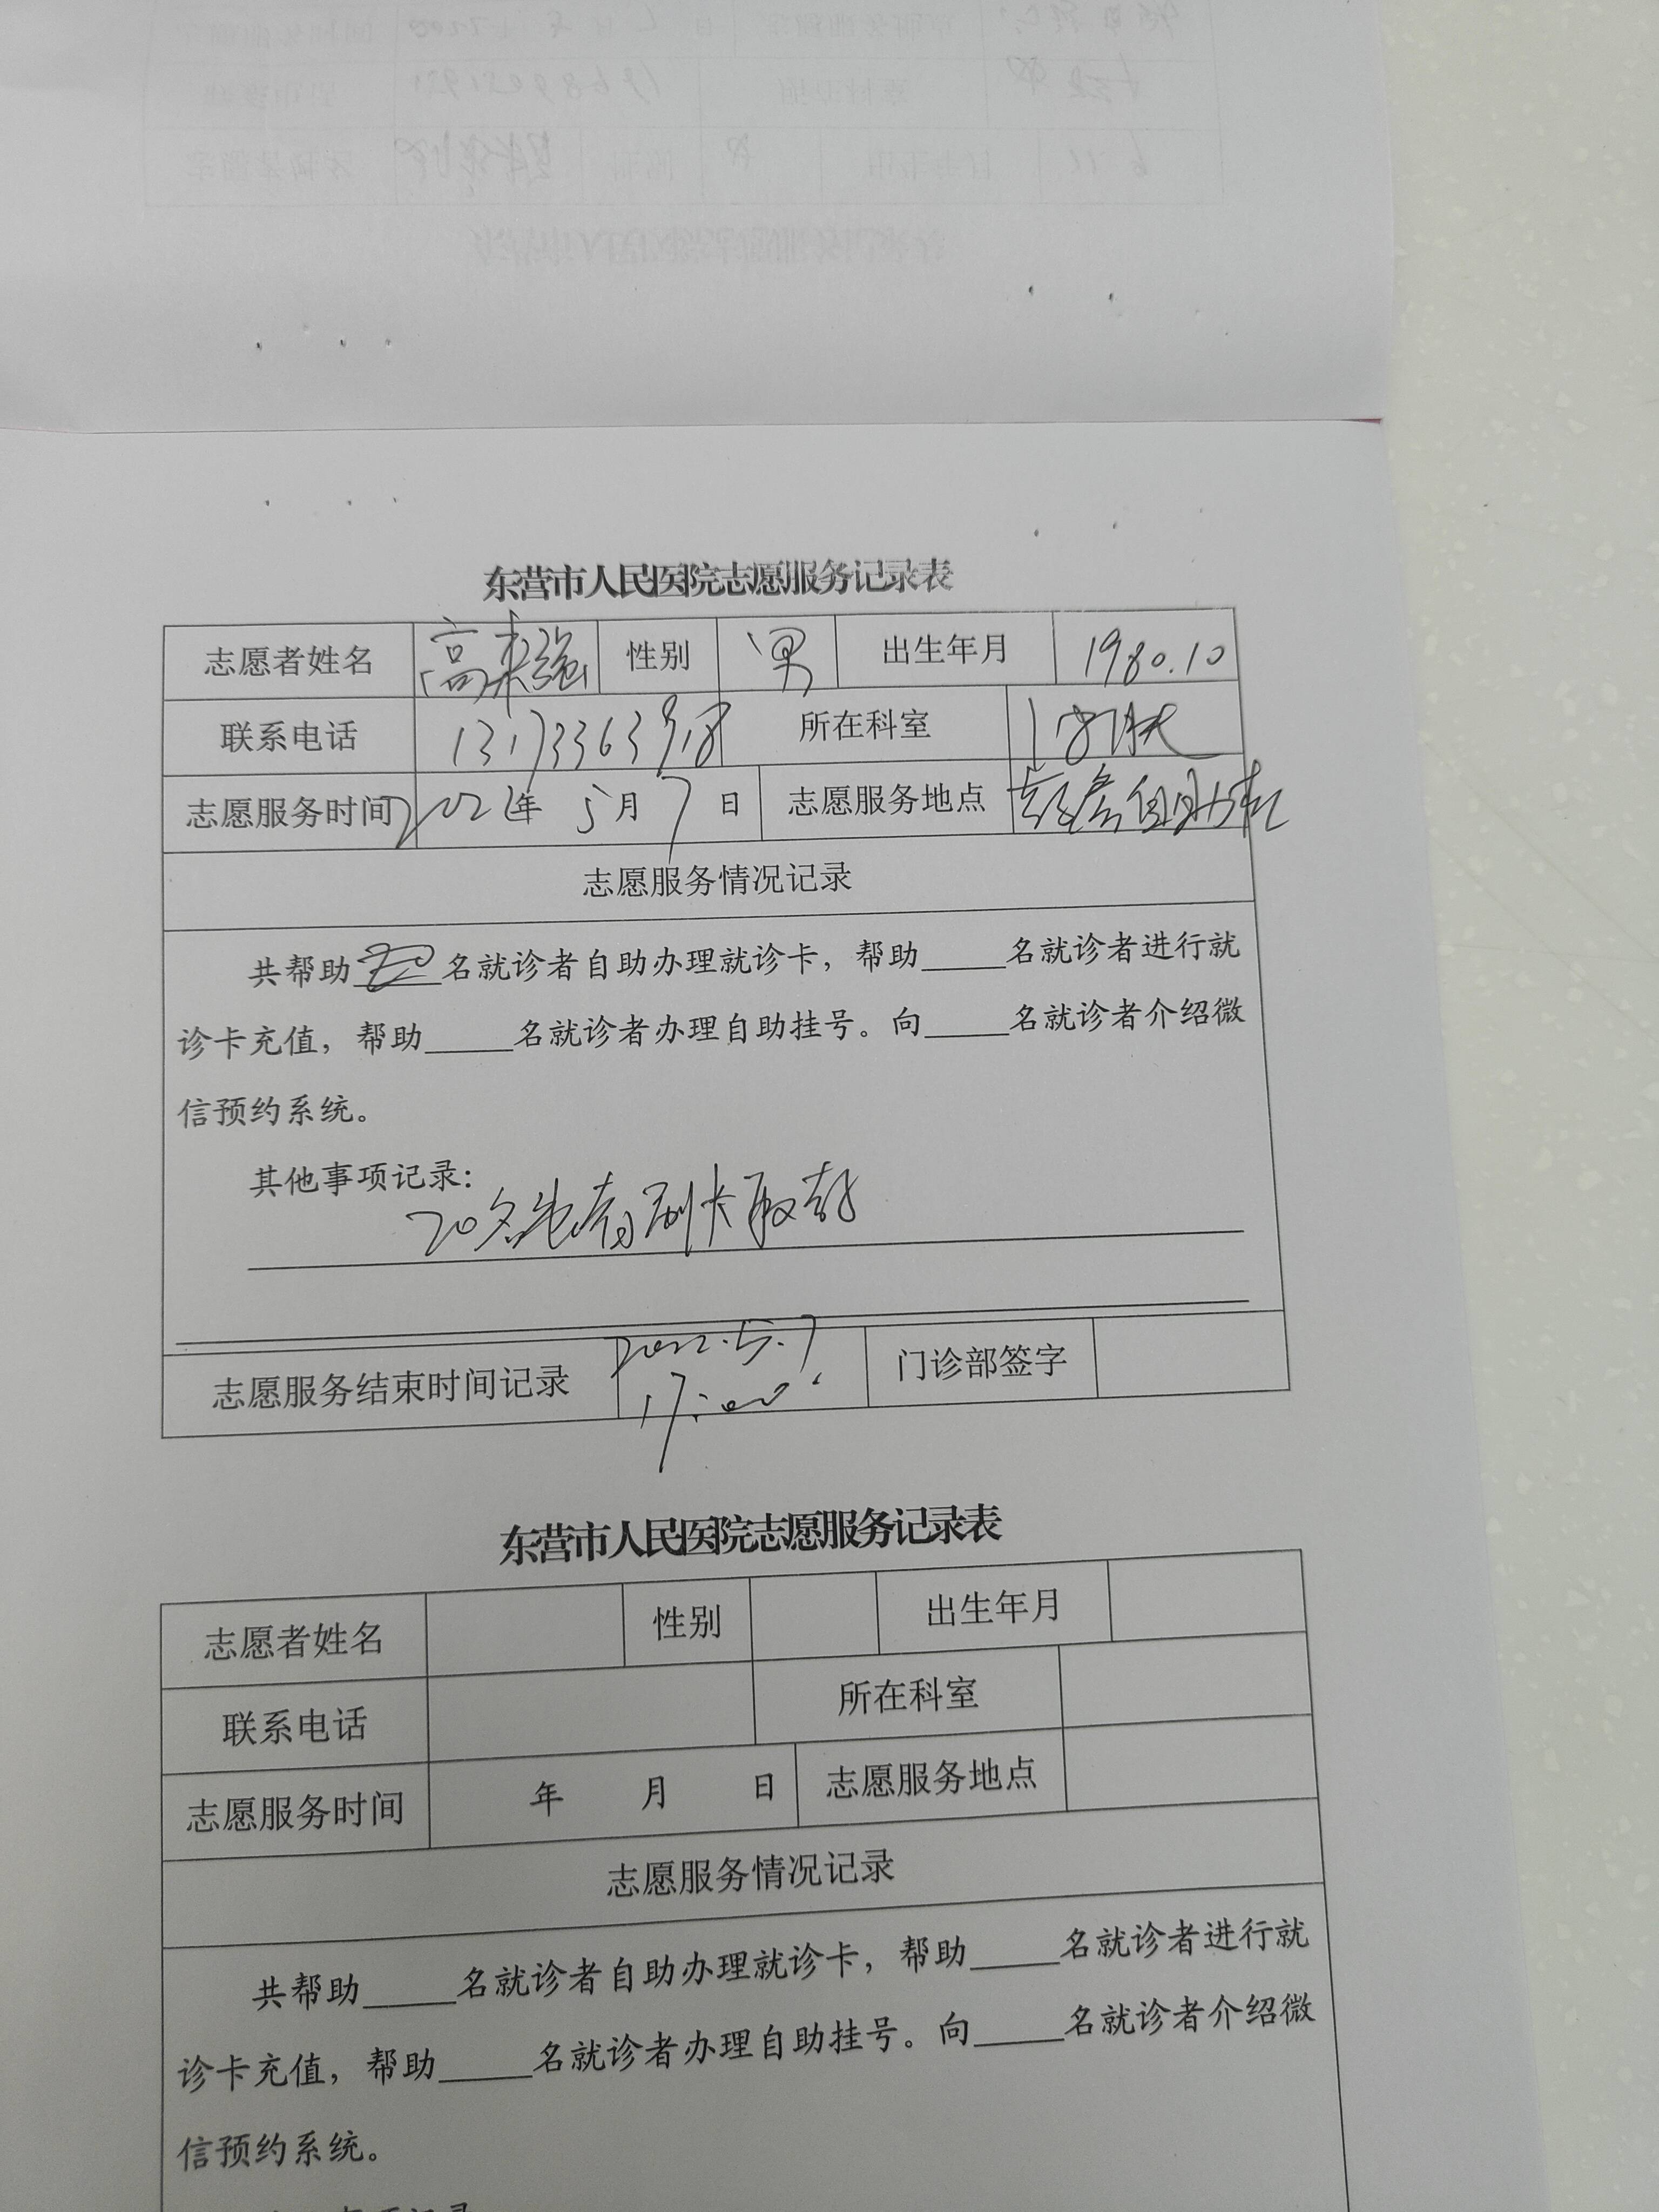 东营市人民医院志愿服务记录表
志愿者姓名 高来强 性别 男 出生年月 1980.10
联系电话 所在科室
志愿服务时间 2022年 5月 7 日 志愿服务地点 自助机
志愿服务情况记录
共帮助 名就诊者自助办理就诊卡，帮助_____名就诊者进行就
诊卡充值，帮助_____名就诊者办理自助挂号。向_____名就诊者介绍微
信预约系统。
其他事项记录：
20名患者刷卡取药
志愿服务结束时间记录 2022.5.7 门诊部签字
17:00
东营市人民医院志愿服务记录表
志愿者姓名 性别 出生年月
联系电话 所在科室
志愿服务时间 年 月 日 志愿服务地点
志愿服务情况记录
共帮助_____名就诊者自助办理就诊卡，帮助_____名就诊者进行就
诊卡充值，帮助_____名就诊者办理自助挂号。向_____名就诊者介绍微
信预约系统。